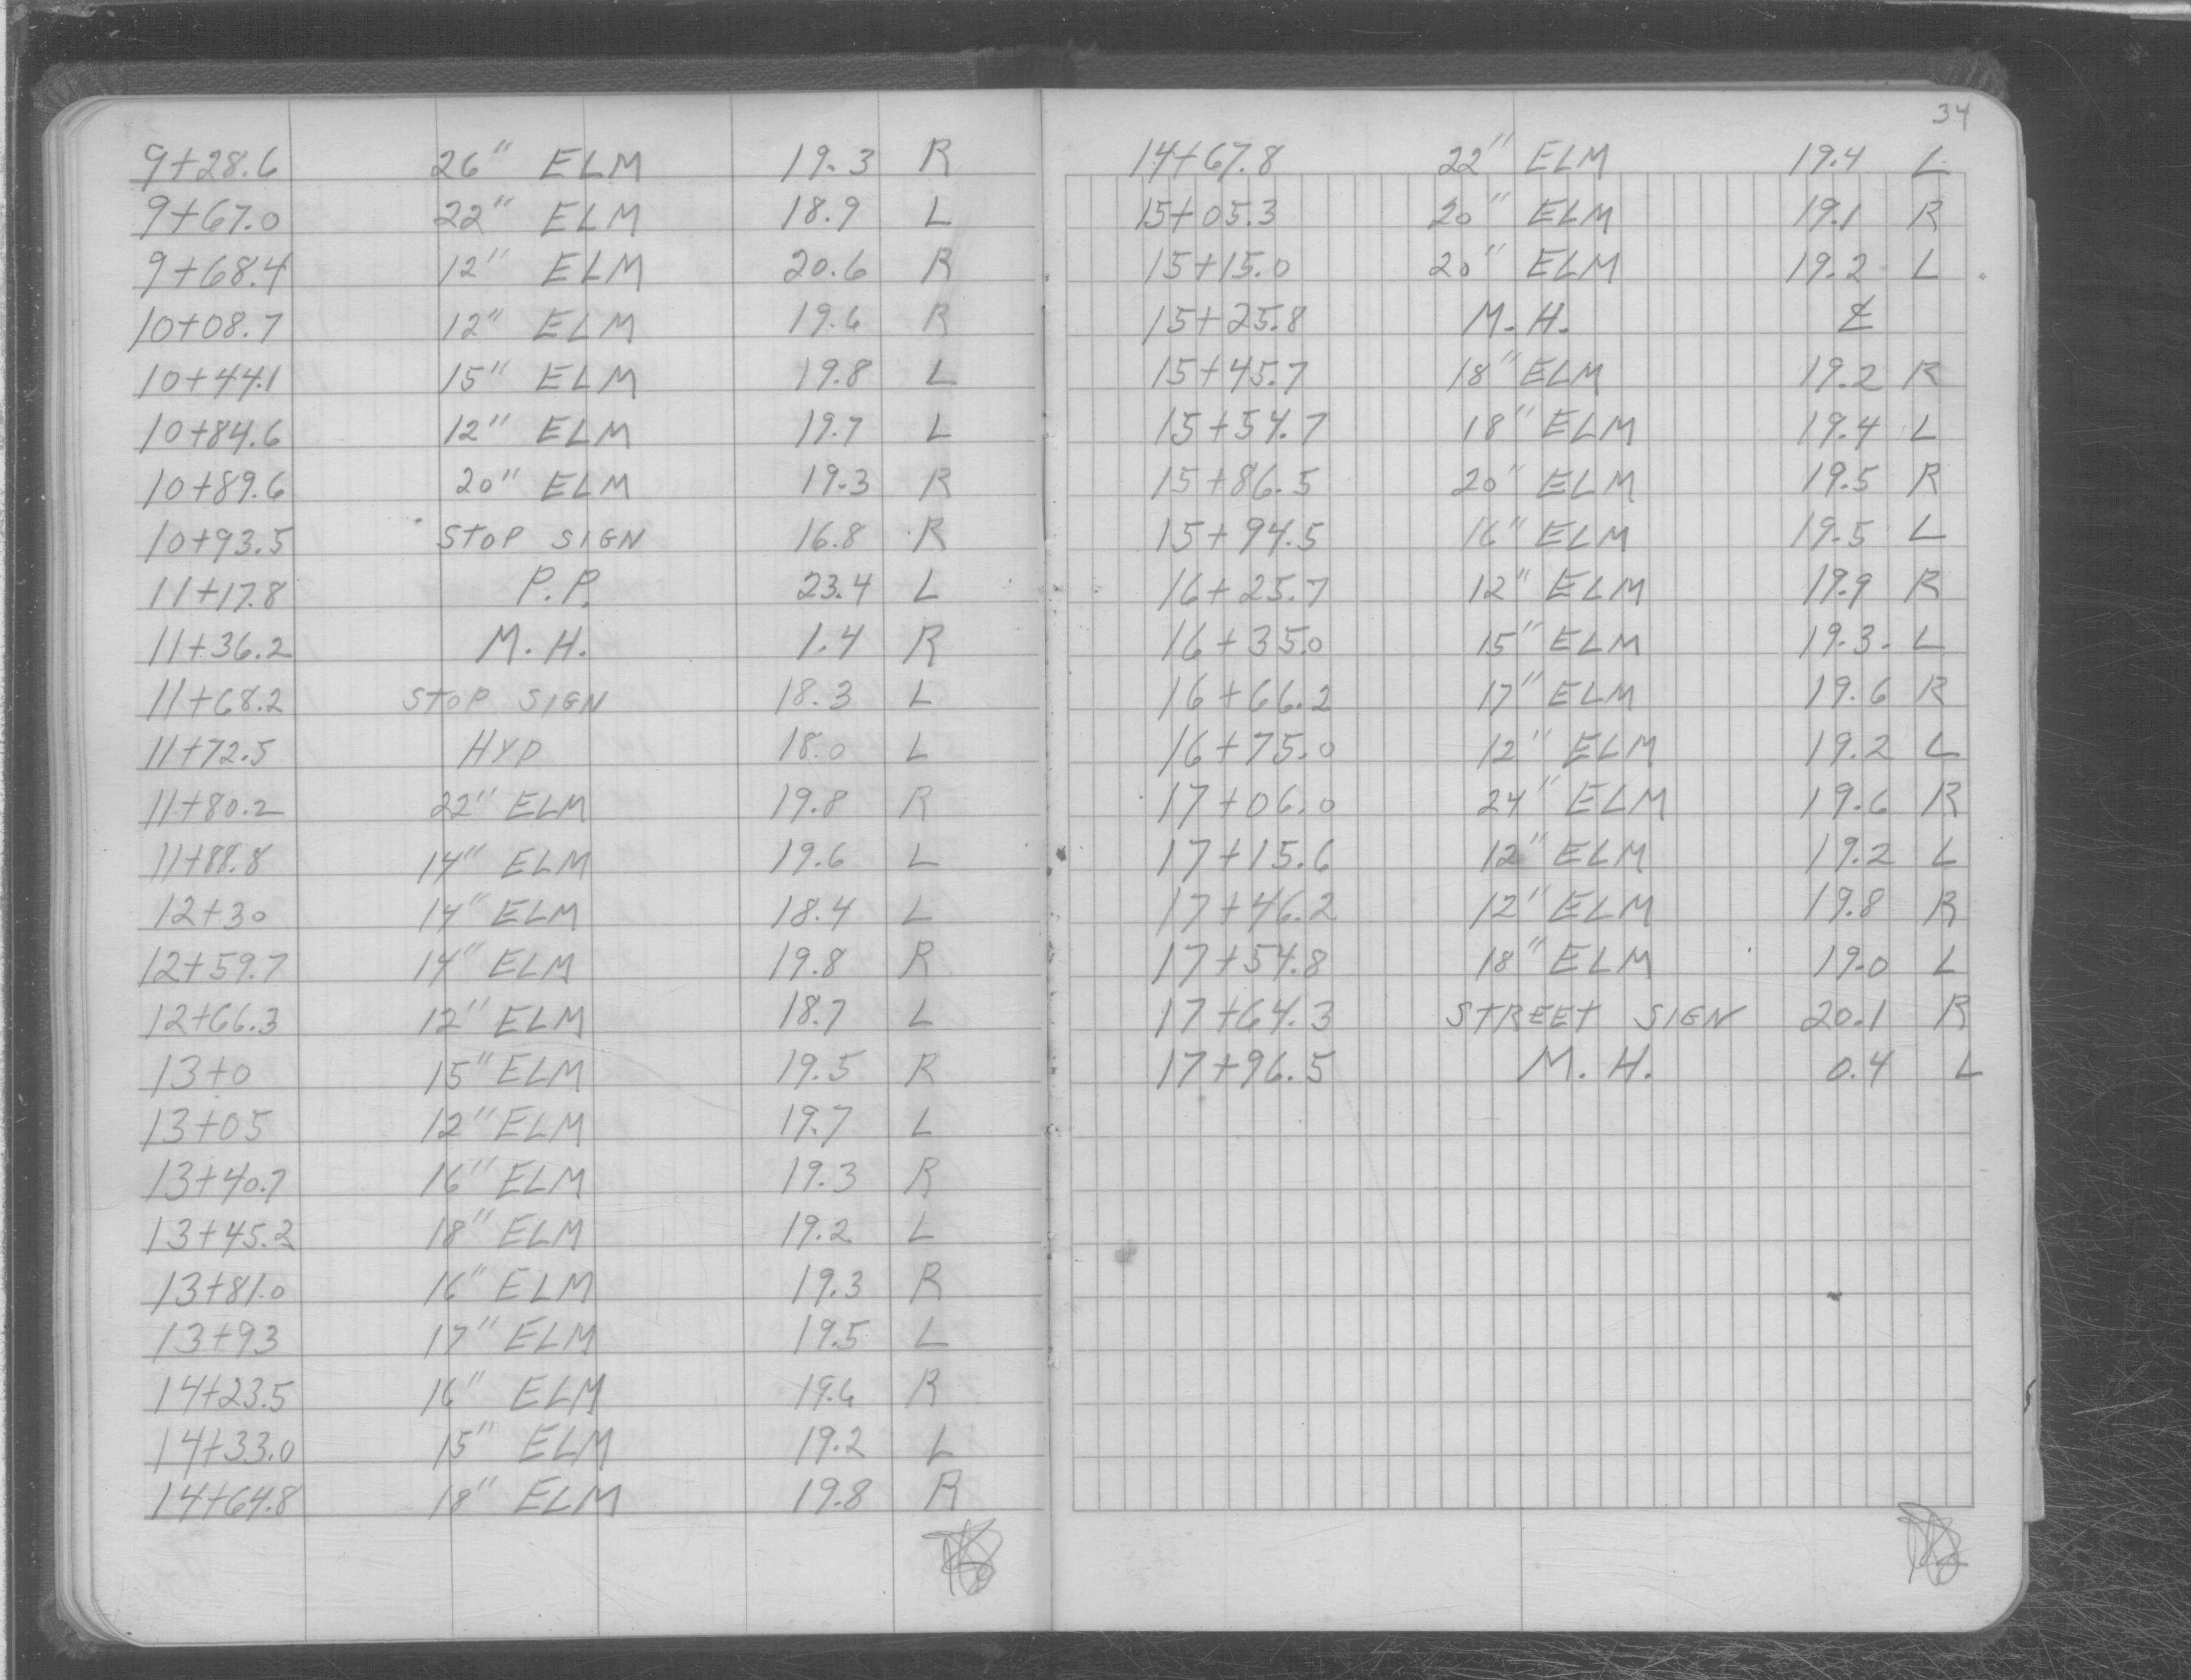 9+28.6 26" ELM 19.3 R
9+67.0 22" ELM 18.9 L
9+68.4 12" ELM 20.6 R
10+08.7 12" ELM 19.6 R
10+44.1 15" ELM 19.8 L
10+84.6 12" ELM 19.7 L
10+89.6 20" ELM 19.3 R
10+93.5 STOP SIGN 16.8 R
11+17.8 P.P. 23.4 L
11+36.2 M.H. 1.4 R
11+68.2 STOP SIGN 18.3 L
11+72.5 HYD 18.0 L
11+80.2 22" ELM 19.8 R
11+88.8 14" ELM 19.6 L
12+30 14" ELM 18.4 L
12+59.7 14" ELM 19.8 R
12+66.3 12" ELM 18.7 L
13+0 15" ELM 19.5 R
13+05 12" ELM 19.7 L
13+40.7 16" ELM 19.3 R
13+45.2 18" ELM 19.2 L
13+81.0 16" ELM 19.3 R
13+93 17" ELM 19.5 L
14+23.5 16" ELM 19.6 R
14+33.0 15" ELM 19.2 L
14+64.8 18" ELM 19.8 R
34
14+67.8 22" ELM 19.4 L
15+05.3 20" ELM 19.1 R
15+15.0 20" ELM 19.2 L
15+25.8 M.H. ℄
15+45.7 18" ELM 19.2 R
15+54.7 18" ELM 19.4 L
15+86.5 20" ELM 19.5 R
15+94.5 16" ELM 19.5 L
16+25.7 12" ELM 19.9 R
16+35.0 15" ELM 19.3 L
16+66.2 17" ELM 19.6 R
16+75.0 12" ELM 19.2 L
17+06.0 24" ELM 19.6 R
17+15.6 12" ELM 19.2 L
17+46.2 12" ELM 19.8 R
17+54.8 18" ELM 19.0 L
17+64.3 STREET SIGN 20.1 R
17+96.5 M.H. 0.4 L